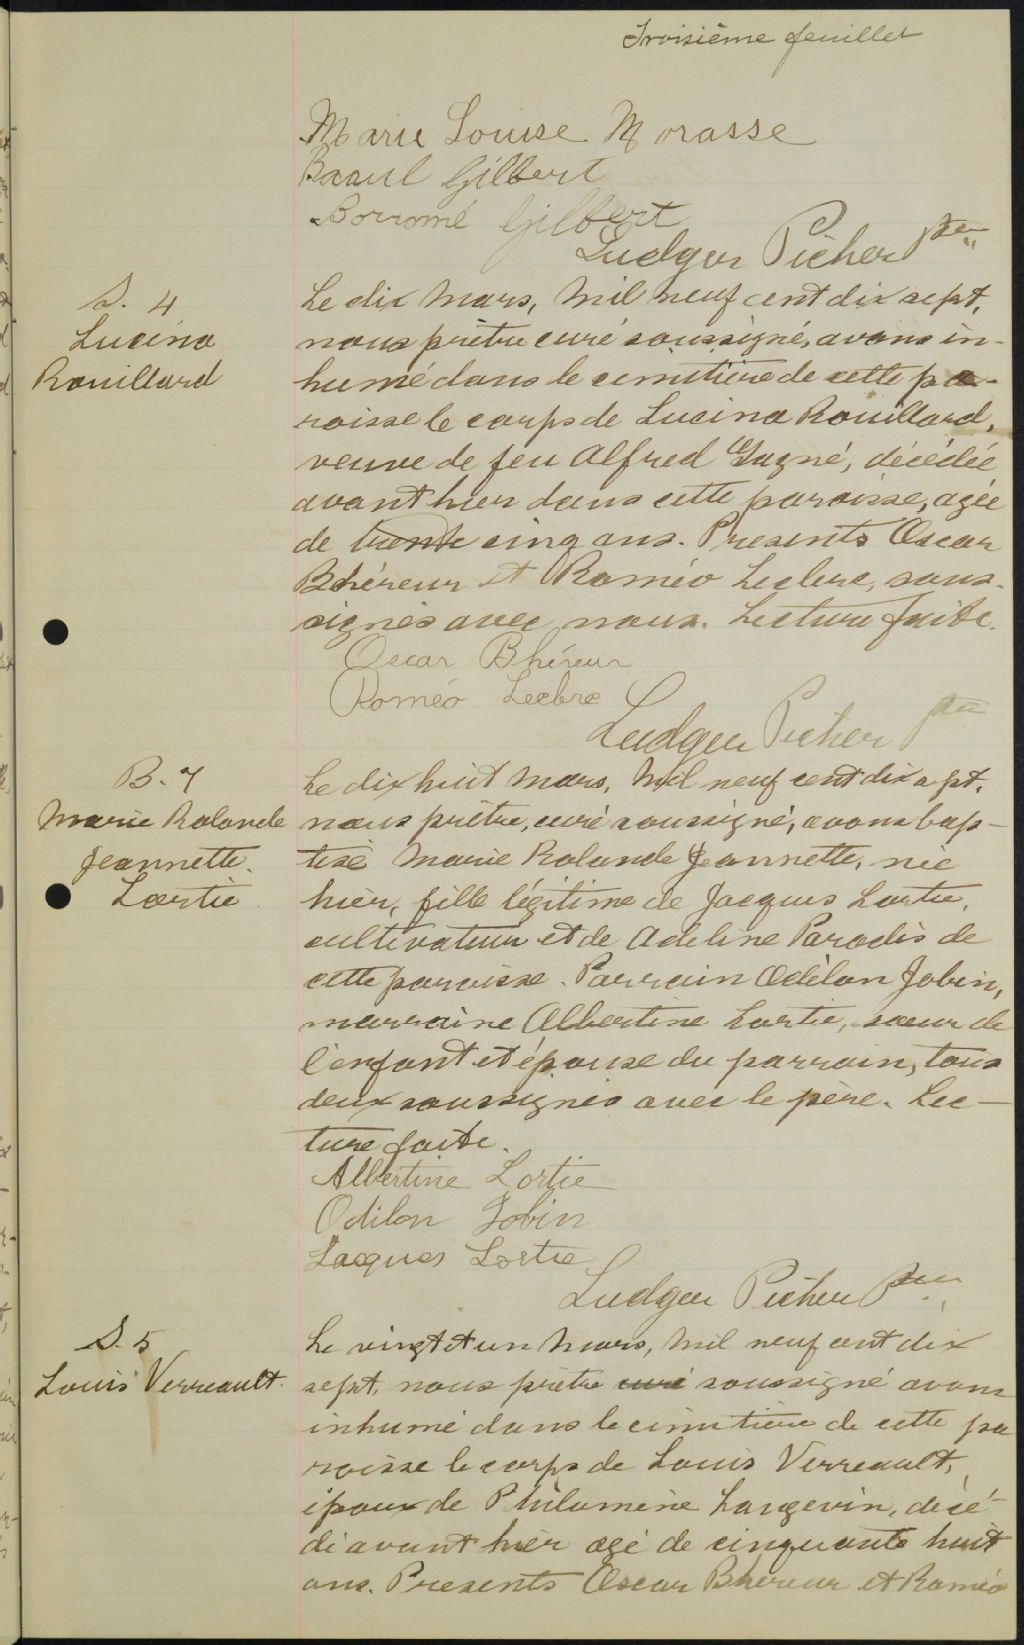 Troisième feuillet
Marie Louise Morasse
Raoul Gilbert
Borromé Gilbert
Ludger Picher Ptre
S. 4
Lucina
Rouillard
Le dix Mars, Mil neuf cent dix sept,
nous prêtre curé soussigné, avons in-
humé dans le cimitière de cette pa-
roisse le corps de Lucina Rouillard,
veuve de feu Alfred Gagné, décédée
avant hier dans cette paroisse, agée
de trente cinq ans. Presents Oscar
Bhéreur et Roméo Leclerc, sous-
signés avec nous. Lecture faite.
Oscar Bhéreur
Roméo Leclerc
Ludger Picher Ptre
B. 7
Marie Rolande
Jeannette
Lortie
Le dix huit Mars, Mil neuf cent dix sept,
nous prêtre, curé soussigné, avons bap-
tisé Marie Rolande Jeannette, née
hier, fille légitime de Jacques Lortie,
cultivateur et de Adeline Paradis de
cette paroisse. Parrain Odilon Jobin,
marraine Albertine Lortie, soeur de
l'enfant et épouse du parrain, tous
deux soussignés avec le père. Lec-
ture faite.
Albertine Lortie
Odilon Jobin
Jacques Lortie
Ludger Picher Ptre
S. 5
Louis Verreault
Le vingt et un Mars, Mil neuf cent dix
sept, nous prêtre curé soussigné avons
inhumé dans le cimitière de cette pa
roisse le corps de Louis Verreault,
époux de Philomène Langevin, décé-
dé avant hier agé de cinquante huit
ans. Presents Oscar Bhéreur et Roméo